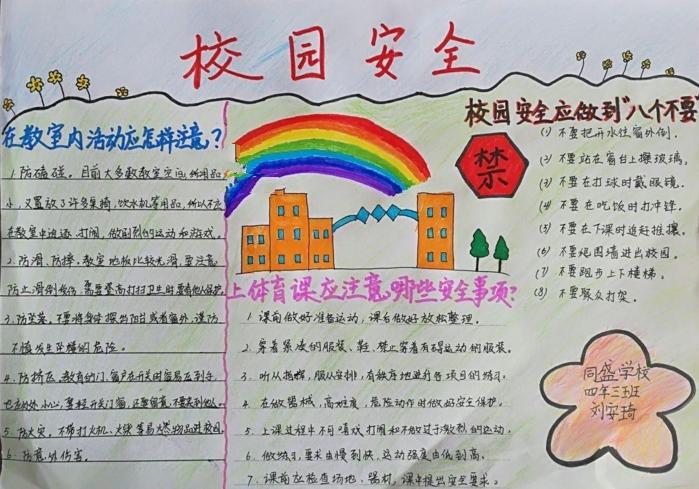 校园安全
在教室内活动应怎样注意?
1.防磕碰。目前大多数教室空间
小,又置放了许多桌椅,饮水机等用品,所以不应
在教室中追逐、打闹,做剧烈的运动和游戏。
2.防滑、防摔,教室地板比较光滑,要注意
防止滑倒
3.防坠落。不要将身体探出阳台或者窗外,谨防
不慎发生坠楼的危险。
4.防挤压,教室的门、窗户在开关时容易压到手,
5.防火灾,不带打火机、火柴等易燃物品进校园。
6.防意外伤害。
上体育课应注意哪些安全事项?
1.课前做好准备运动,课后做好放松整理。
2.穿着条的服装、鞋,禁止穿着有碍运动的服装。
3.听从指挥,服从安排,有秩序地进行各项目的练习。
4.在做器械,高难度,危险动作时做好安全保护。
5.上课过程中不可嘻戏打闹和不做过于激烈的运动。
6.做练习,要求由慢到快,运动强度由低到高。
7.课前应检查场地、器材,课中提出安全要求。
校园安全应做到"八个不要"
禁
(1) 不要把开水往窗外倒。
(2) 不要站在窗台上擦玻璃。
(3) 不要在打球时戴眼镜。
(4) 不要在吃饭时打冲锋。
(5) 不要在下课时追赶推攘。
(6) 不要爬围墙进出校园。
(7) 不要跑步上下楼梯。
(8) 不要聚众打架。
同盛学校
四年三班
刘安琦